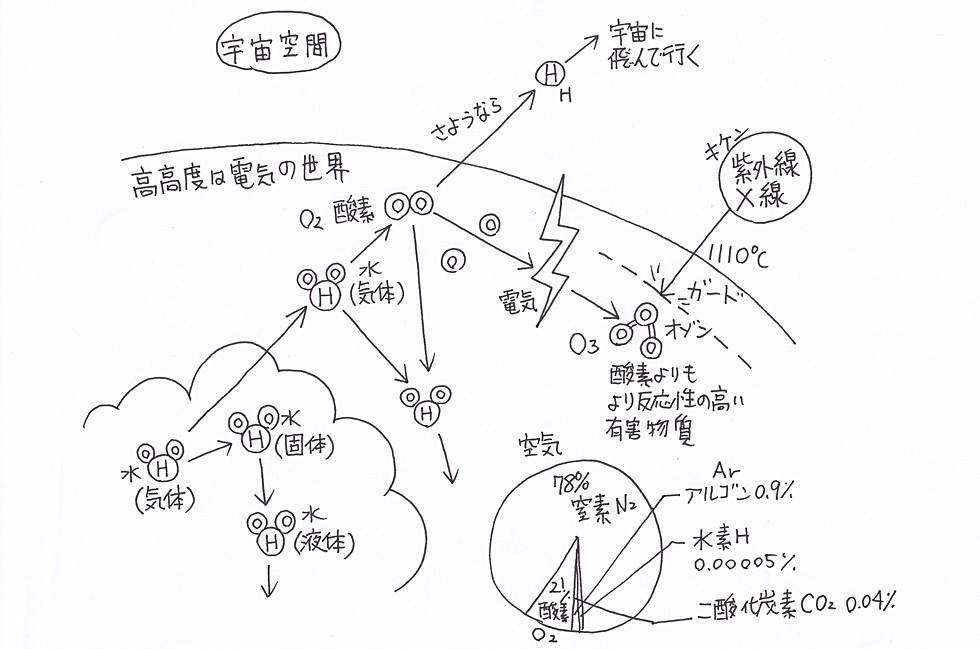 宇宙空間
宇宙に
飛んで行く
H
H
さようなら
高高度は電気の世界
キケン
紫外線
X線
O2 酸素
O O
O
O
1110℃
ガード
電気
O3
O
O
O
オゾン
酸素よりも
より反応性の高い
有害物質
O O
H
水
(気体)
O O
H
O O
H
水
(固体)
水
O O
H
(気体)
O O
H
水
(液体)
空気
78%
窒素N2
21
%
酸素
O2
Ar
アルゴン0.9%
水素H
0.00005%
二酸化炭素CO2 0.04%